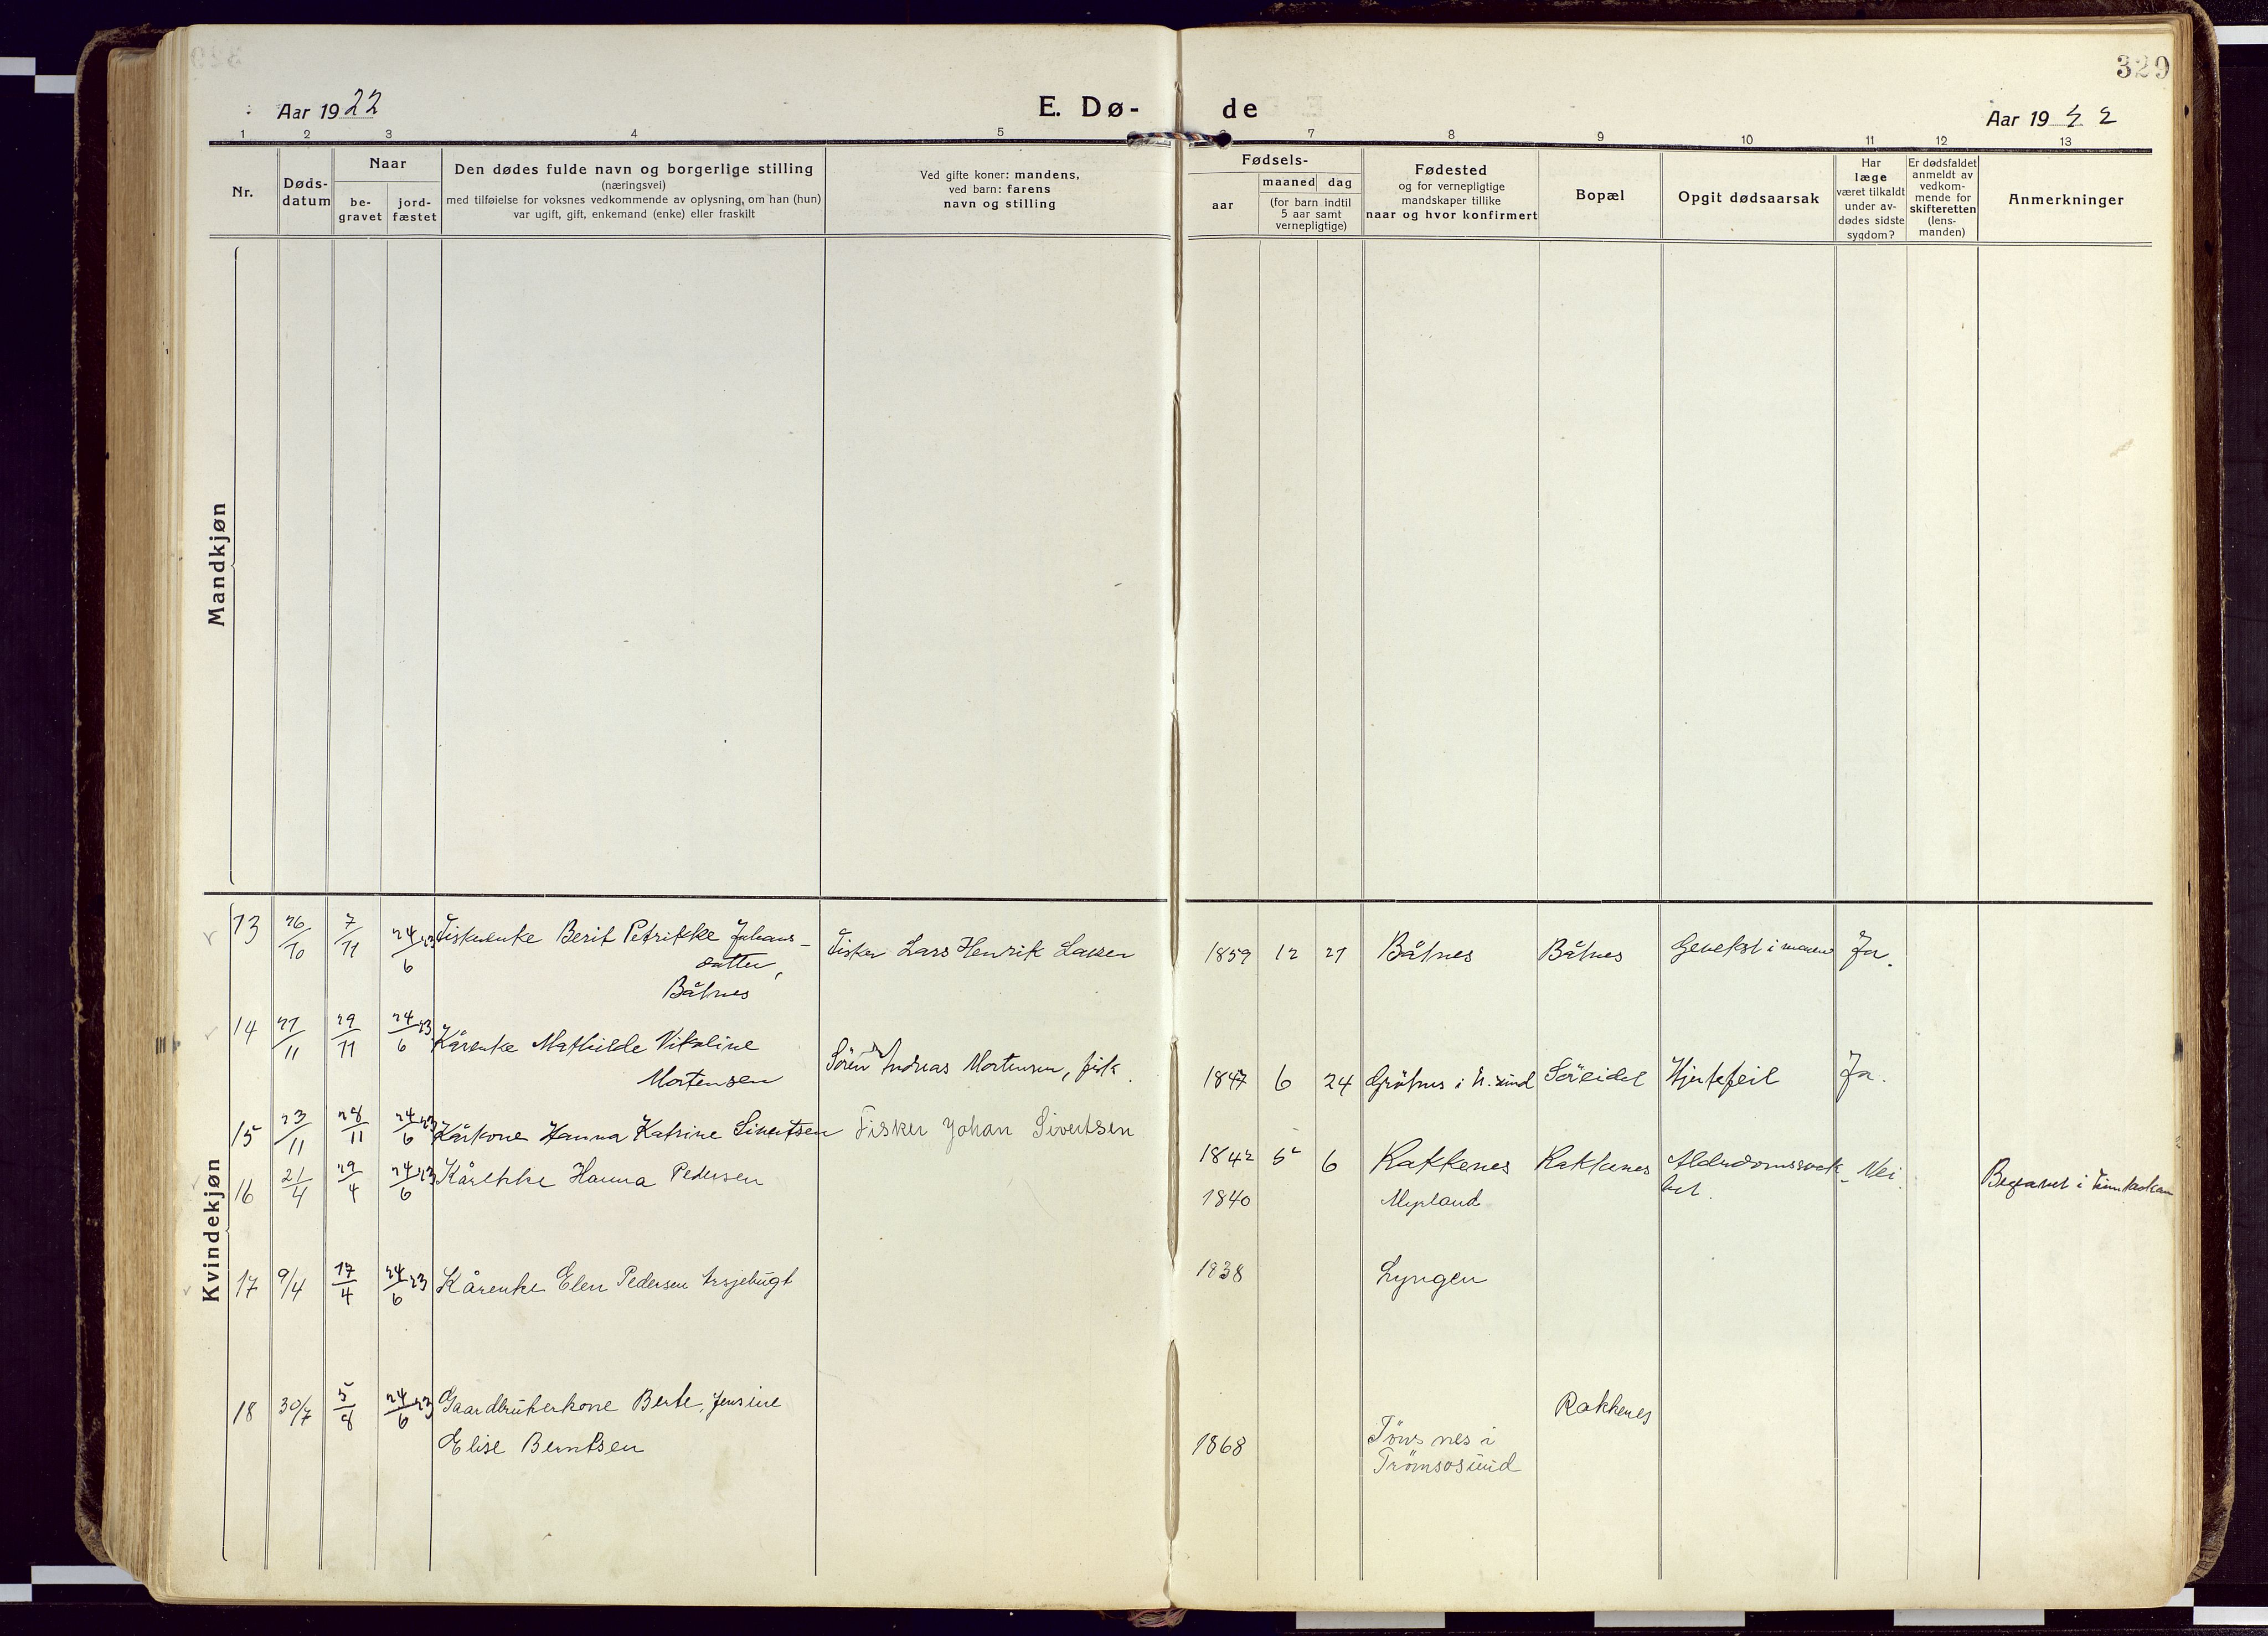 329
Aar 1922
E. Dø- de
Aar 1922
1 2 3 4 5 7 8 9 10 11 12 13
Nr.
Døds-
datum
Naar
be-
gravet
jord-
fæstet
Den dødes fulde navn og borgerlige stilling
(næringsvei)
med tilføielse for voksnes vedkommende av oplysning, om han (hun)
var ugift, gift, enkemand (enke) eller fraskilt
Ved gifte koner: mandens,
ved barn: farens
navn og stilling
Fødsels-
aar
maaned dag
(for barn indtil
5 aar samt
vernepligtige)
Fødested
og for vernepligtige
mandskaper tillike
naar og hvor konfirmert
Bopæl
Opgit dødsaarsak
Har
læge
været tilkaldt
under av-
dødes sidste
sygdom?
Er dødsfaldet
anmeldt av
vedkom-
mende for
skifteretten
(lens-
manden)
Anmerkninger
Mandkjøn
Kvindekjøn
13 26/10 7/11 24/6 23 Fiskerenke Berit Petrikke Johans- Fisker Lars Henrik Larsen 1859 12 27 Båtnes Båtnes Gevekst i maven Ja.
datter,
Båtnes
14 27/11 29/11 24/6 23 Kårenke Mathilde Vikoline Sören Andreas Mortensen, fisk. 1847 6 24 Grötnes i H.sund Söreidet Hjertefeil Ja.
Mortensen
15 23/11 28/11 24/6 23 Kårkone Hanna Katrine Sivertsen Fisker Johan Sivertsen 1842 5 6 Rakkenes Rakkenes Alderdomssvak- Nei
het.
16 21/4 29/4 24/6 23 Hanna Pedersen 1840 Begravet i
17 9/4 17/4 24/6 23 Kårenke Elen Pedersen 1838 Lyngen
18 30/7 5/8 24/6 23 Gaardbrukerkone Berte, Jensine Rakkenes
Elise Berntsen 1868 Tönsnes i
Tromsosund